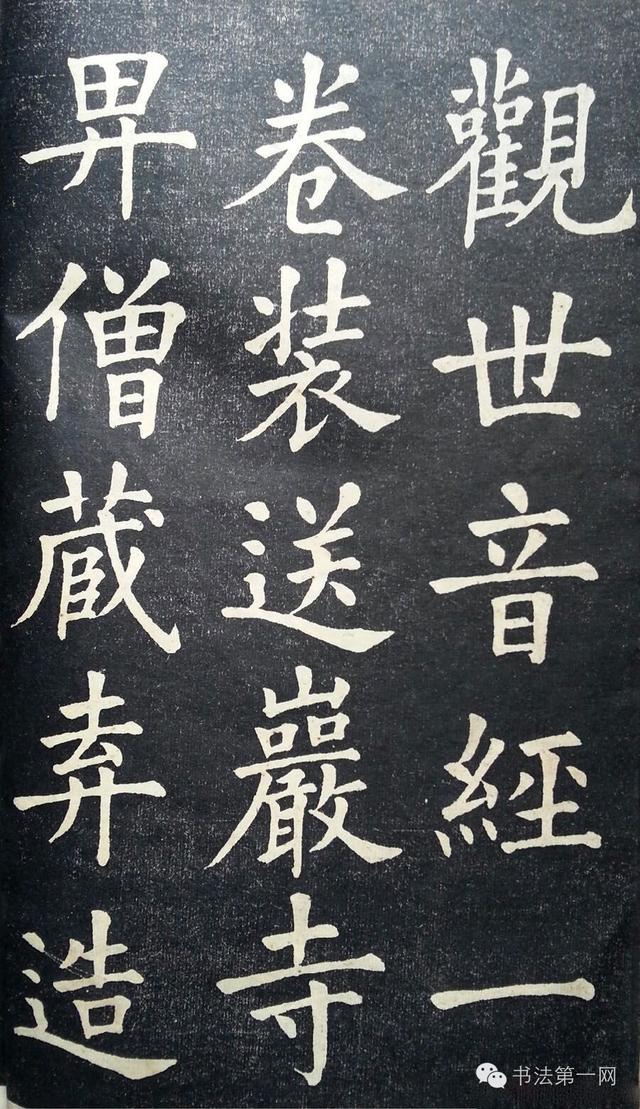 觀世音經一
卷装送巖寺
畀僧蔵弆造
书法第一网